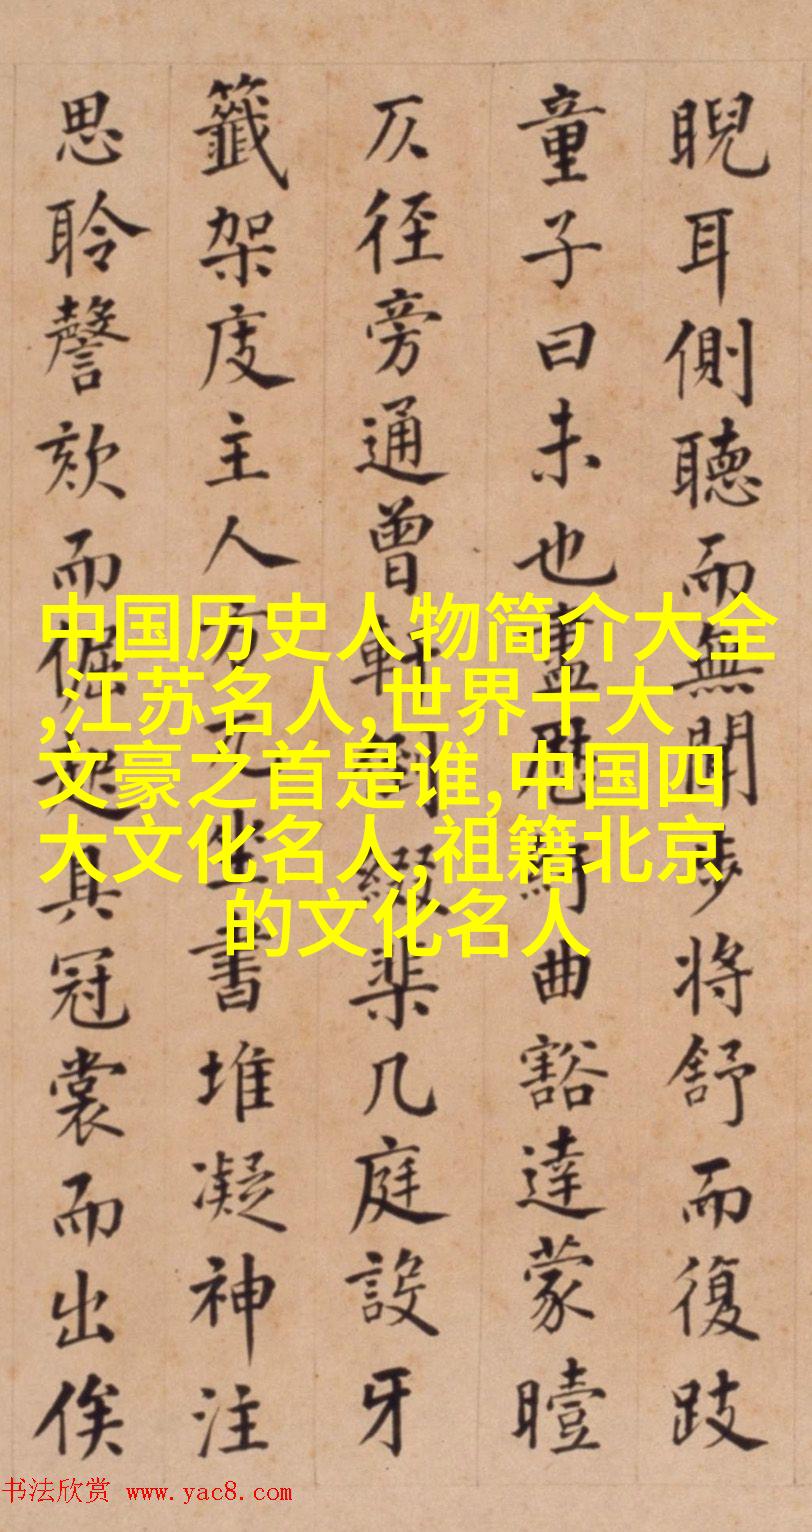 睨耳側聽而無聞步將舒而復跂
童子曰未也曲豁達蒙曀
仄徑旁通曾軒綴棐几庭設牙
籤架庋主人方兀坐書堆凝神注
思聆謦欬而倔起具冠裳而出俟
中国历史人物简介大全
,江苏名人,世界十大
文豪之首是谁,中国四
大文化名人,祖籍北京
的文化名人
书法欣赏 www.yac8.com